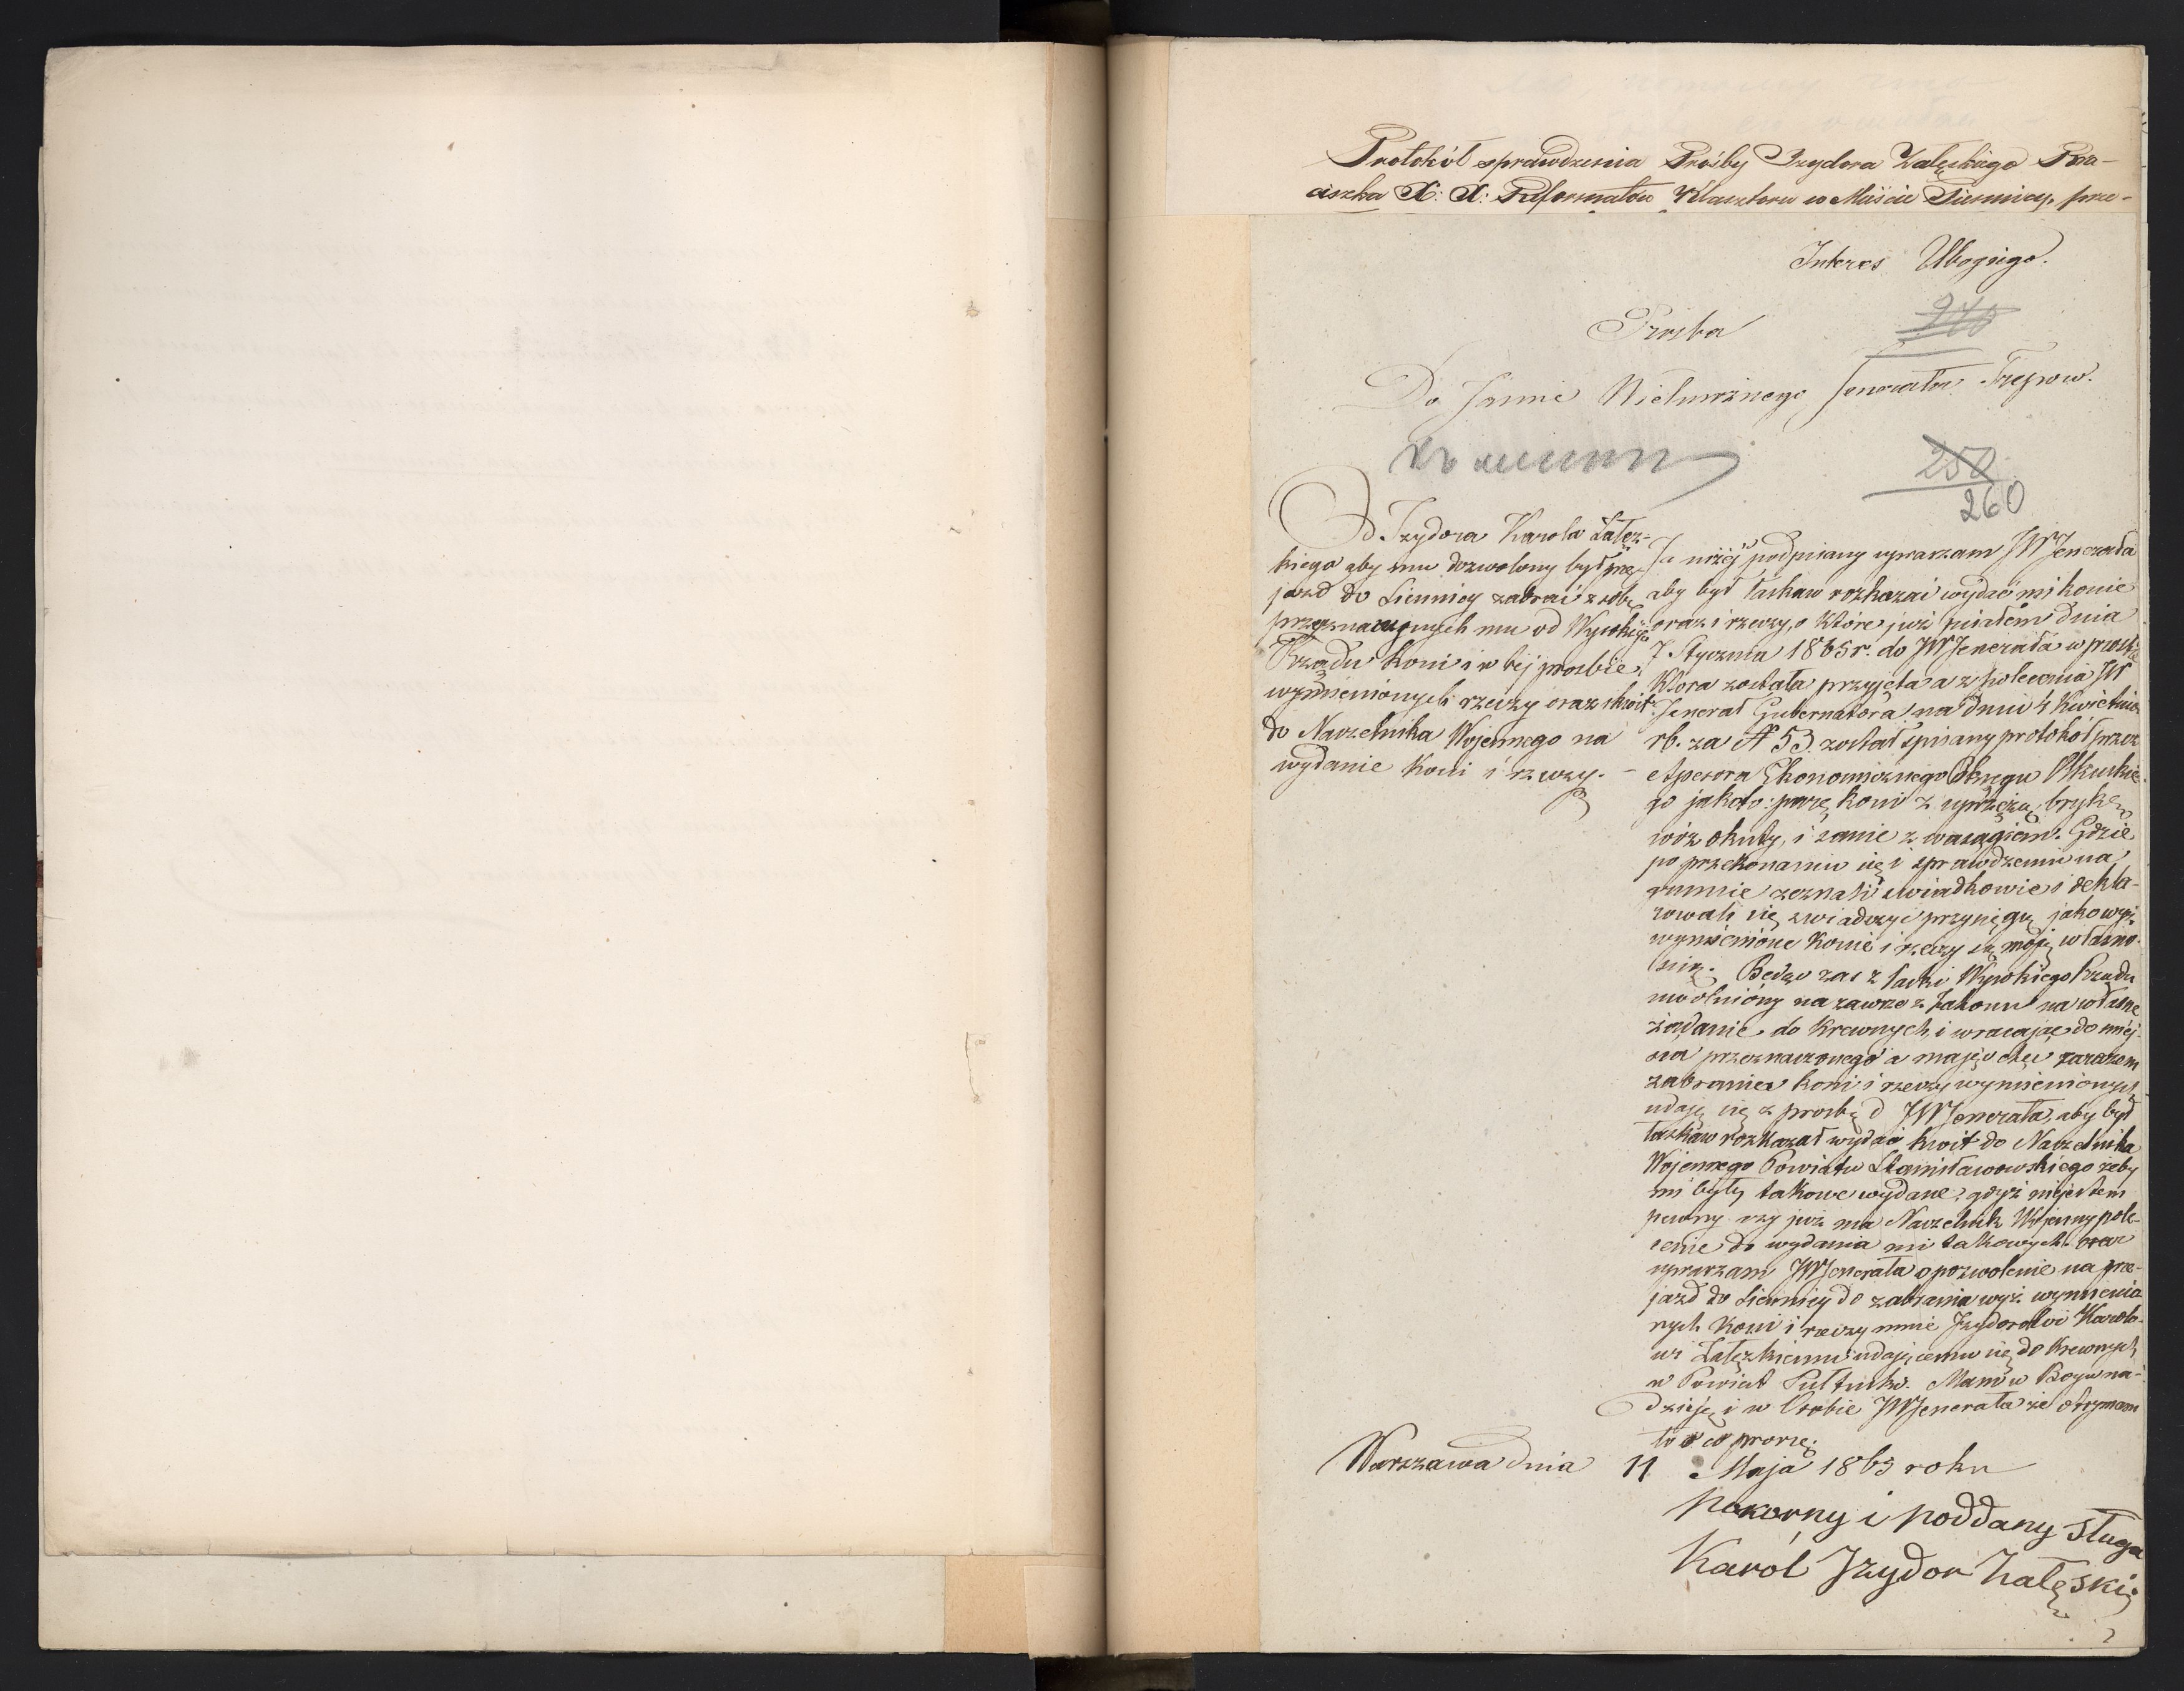 Protokół sprawdzenia Prośby Izydora Załęskiego Bra-
ciszka X: X: Reformatów Klasztoru w Mieście Siennicy, prze-
Interes Ubogiego.
Prosba
240
Do Jaśnie Wielmożnego Jenerała Trepow.
250
260
Od Izydora Karola Załęz-
kiego aby mu dozwolony był prze-
jazd do Siennicy zabrać z sobą
przeznaczonych mu od Wysokiego
Rządu koni i w tej prosbie
wymienionych rzeczy oraz kwit
do Naczelnika Wojennego na
wydanie Koni i rzeczy. -
Ja niżéj podpisany upraszam JW Jenerała
aby był łaskaw rozkazać wydać mi konie
oraz i rzeczy, o które już pisałem dnia
7 Stycznia 1865 r. do JW Jenerała w prosbie
Która została przyjęta a z polecenia JW
Jenerał Gubernatora na dniu 4 Kwietnia
rb. za N 53 został spisany protokół przez
Asesora Ekonomicznego Okręgu
go jako to: parę koni z uprzężą, brykę
wóz okuty, i sanie z wasągiem. Gdzie
po przekonaniu się i sprawdzeniu na
gruncie zeznali swiadkowie i dekla-
rowali się zwiadczyć przysięgą jako wyż.
wymienione Konie i rzeczy są moją własno-
scią. Będąc zas z łaski Wysokiego Rządu
uwolniony na zawsze z Zakonu na własne
żądanie do Krewnych, i wracając do miej-
sca przeznaczonego a mając chęć zarazem
zabrania koni i rzeczy wymienionych
udaję się z prosbą d JW Jenerała, aby był
łaskaw rozkazał wydać kwit do Naczelnika
Wojennego Powiatu Stanisławowskiego żeby
mi były takowe wydane, gdyż niejestem
pewny czy już ma Naczelnik Wojenny pole-
cenie do wydania mi takowych. oraz
upraszam JW Jenerała o pozwolenie na prze-
jazd do Siennicy do zabrania wyż. wymienio
nych Koni i rzeczy mnie Izydorowi Karolo-
wi Załęzkiemu udającemu się do Krewnych
w Powiat Pułtuski. Mam w Bogu na-
dzieję i w Osobie JW Jenerała że otrzymam
to o co proszę.
Warszawa dnia 11 Maja 1865 roku
Pokorny i poddany Sługa
Karól Izydor Załęski